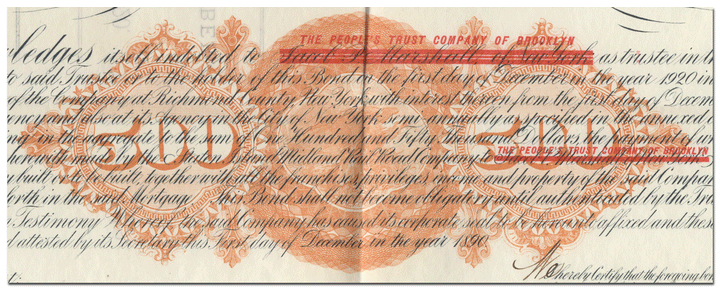 THE PEOPLE'S TRUST COMPANY OF BROOKLYN
ledges itself indebted to Jacob P. Marshall of New York as trustee in th
to said Trustee or to the holder of this Bond on the first day of December in the year 1920 in
of the Company at Richmond County, New York with interest thereon from the first day of Decem
ence and also at its Agency in the City of New York, semi annually as specified in the annexed co
ing in the aggregate to the sum of One Hundred and Fifty Thousand Dollars the payment of wh
THE PEOPLE'S TRUST COMPANY OF BROOKLYN
Staten Island Railroad Company to
be built or to be built, together with all the franchises, privileges income and property of the said Compan
forth in the said Mortgage. This Bond shall not become obligatory until authenticated by the Trus
Testimony Whereof the said Company has caused its corporate seal to be hereunto affixed and these
d attested by its Secretary this First day of December in the year 1890.
hereby Certify that the foregoing bon
500
500